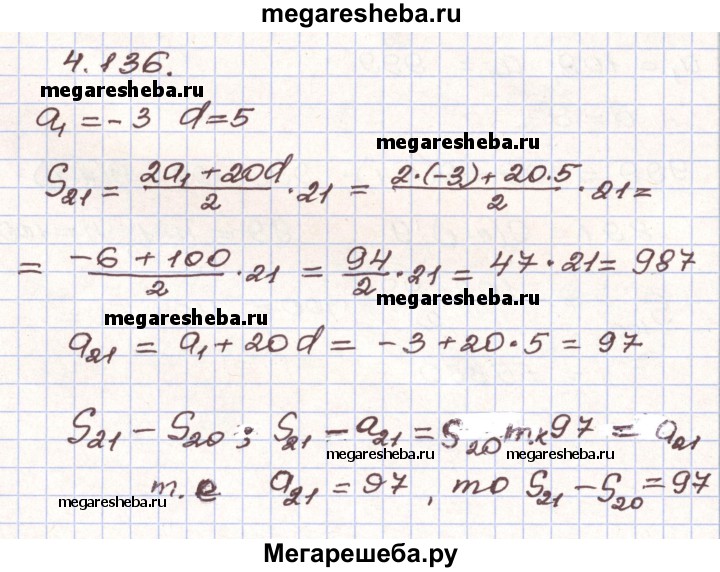 megaresheba.ru
4.136.
megaresheba.ru
a₁ = -3 d = 5
megaresheba.ru
S₂₁ = (2a₁ + 20d)/2 · 21 = (2·(-3) + 20·5)/2 · 21 =
= (-6 + 100)/2 · 21 = 94/2 · 21 = 47 · 21 = 987
megaresheba.ru
megaresheba.ru
a₂₁ = a₁ + 20d = -3 + 20·5 = 97
S₂₁ - S₂₀; S₂₁ - a₂₁ = S₂₀ т.к 97 = a₂₁
megaresheba.ru
т.е a₂₁ = 97, то S₂₁ - S₂₀ = 97
megaresheba.ru
megaresheba.ru
Мегарешеба.ру